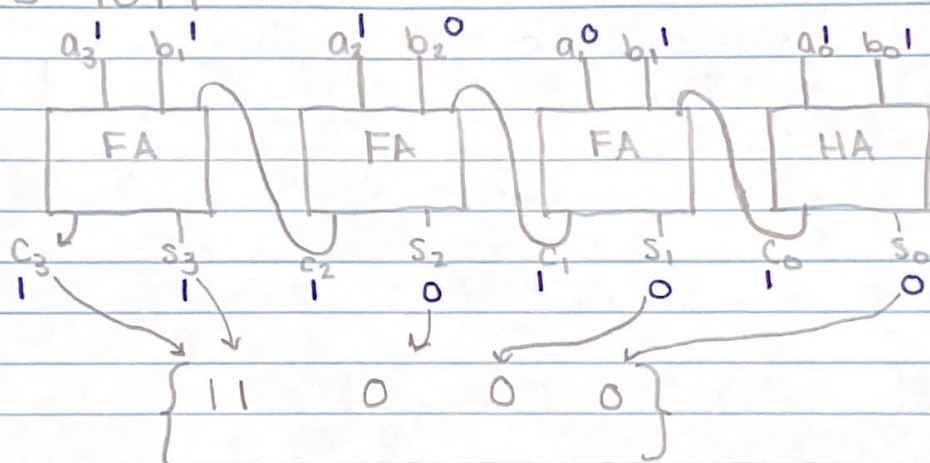 a₃ 1 b₁ 1 a₂ 1 b₂ 0 a₁ 0 b₁ 1 a₀ 1 b₀ 1
FA FA FA HA
C₃ S₃ C₂ S₂ C₁ S₁ C₀ S₀
1 1 1 0 1 0 1 0
{ 1 1 0 0 0 }